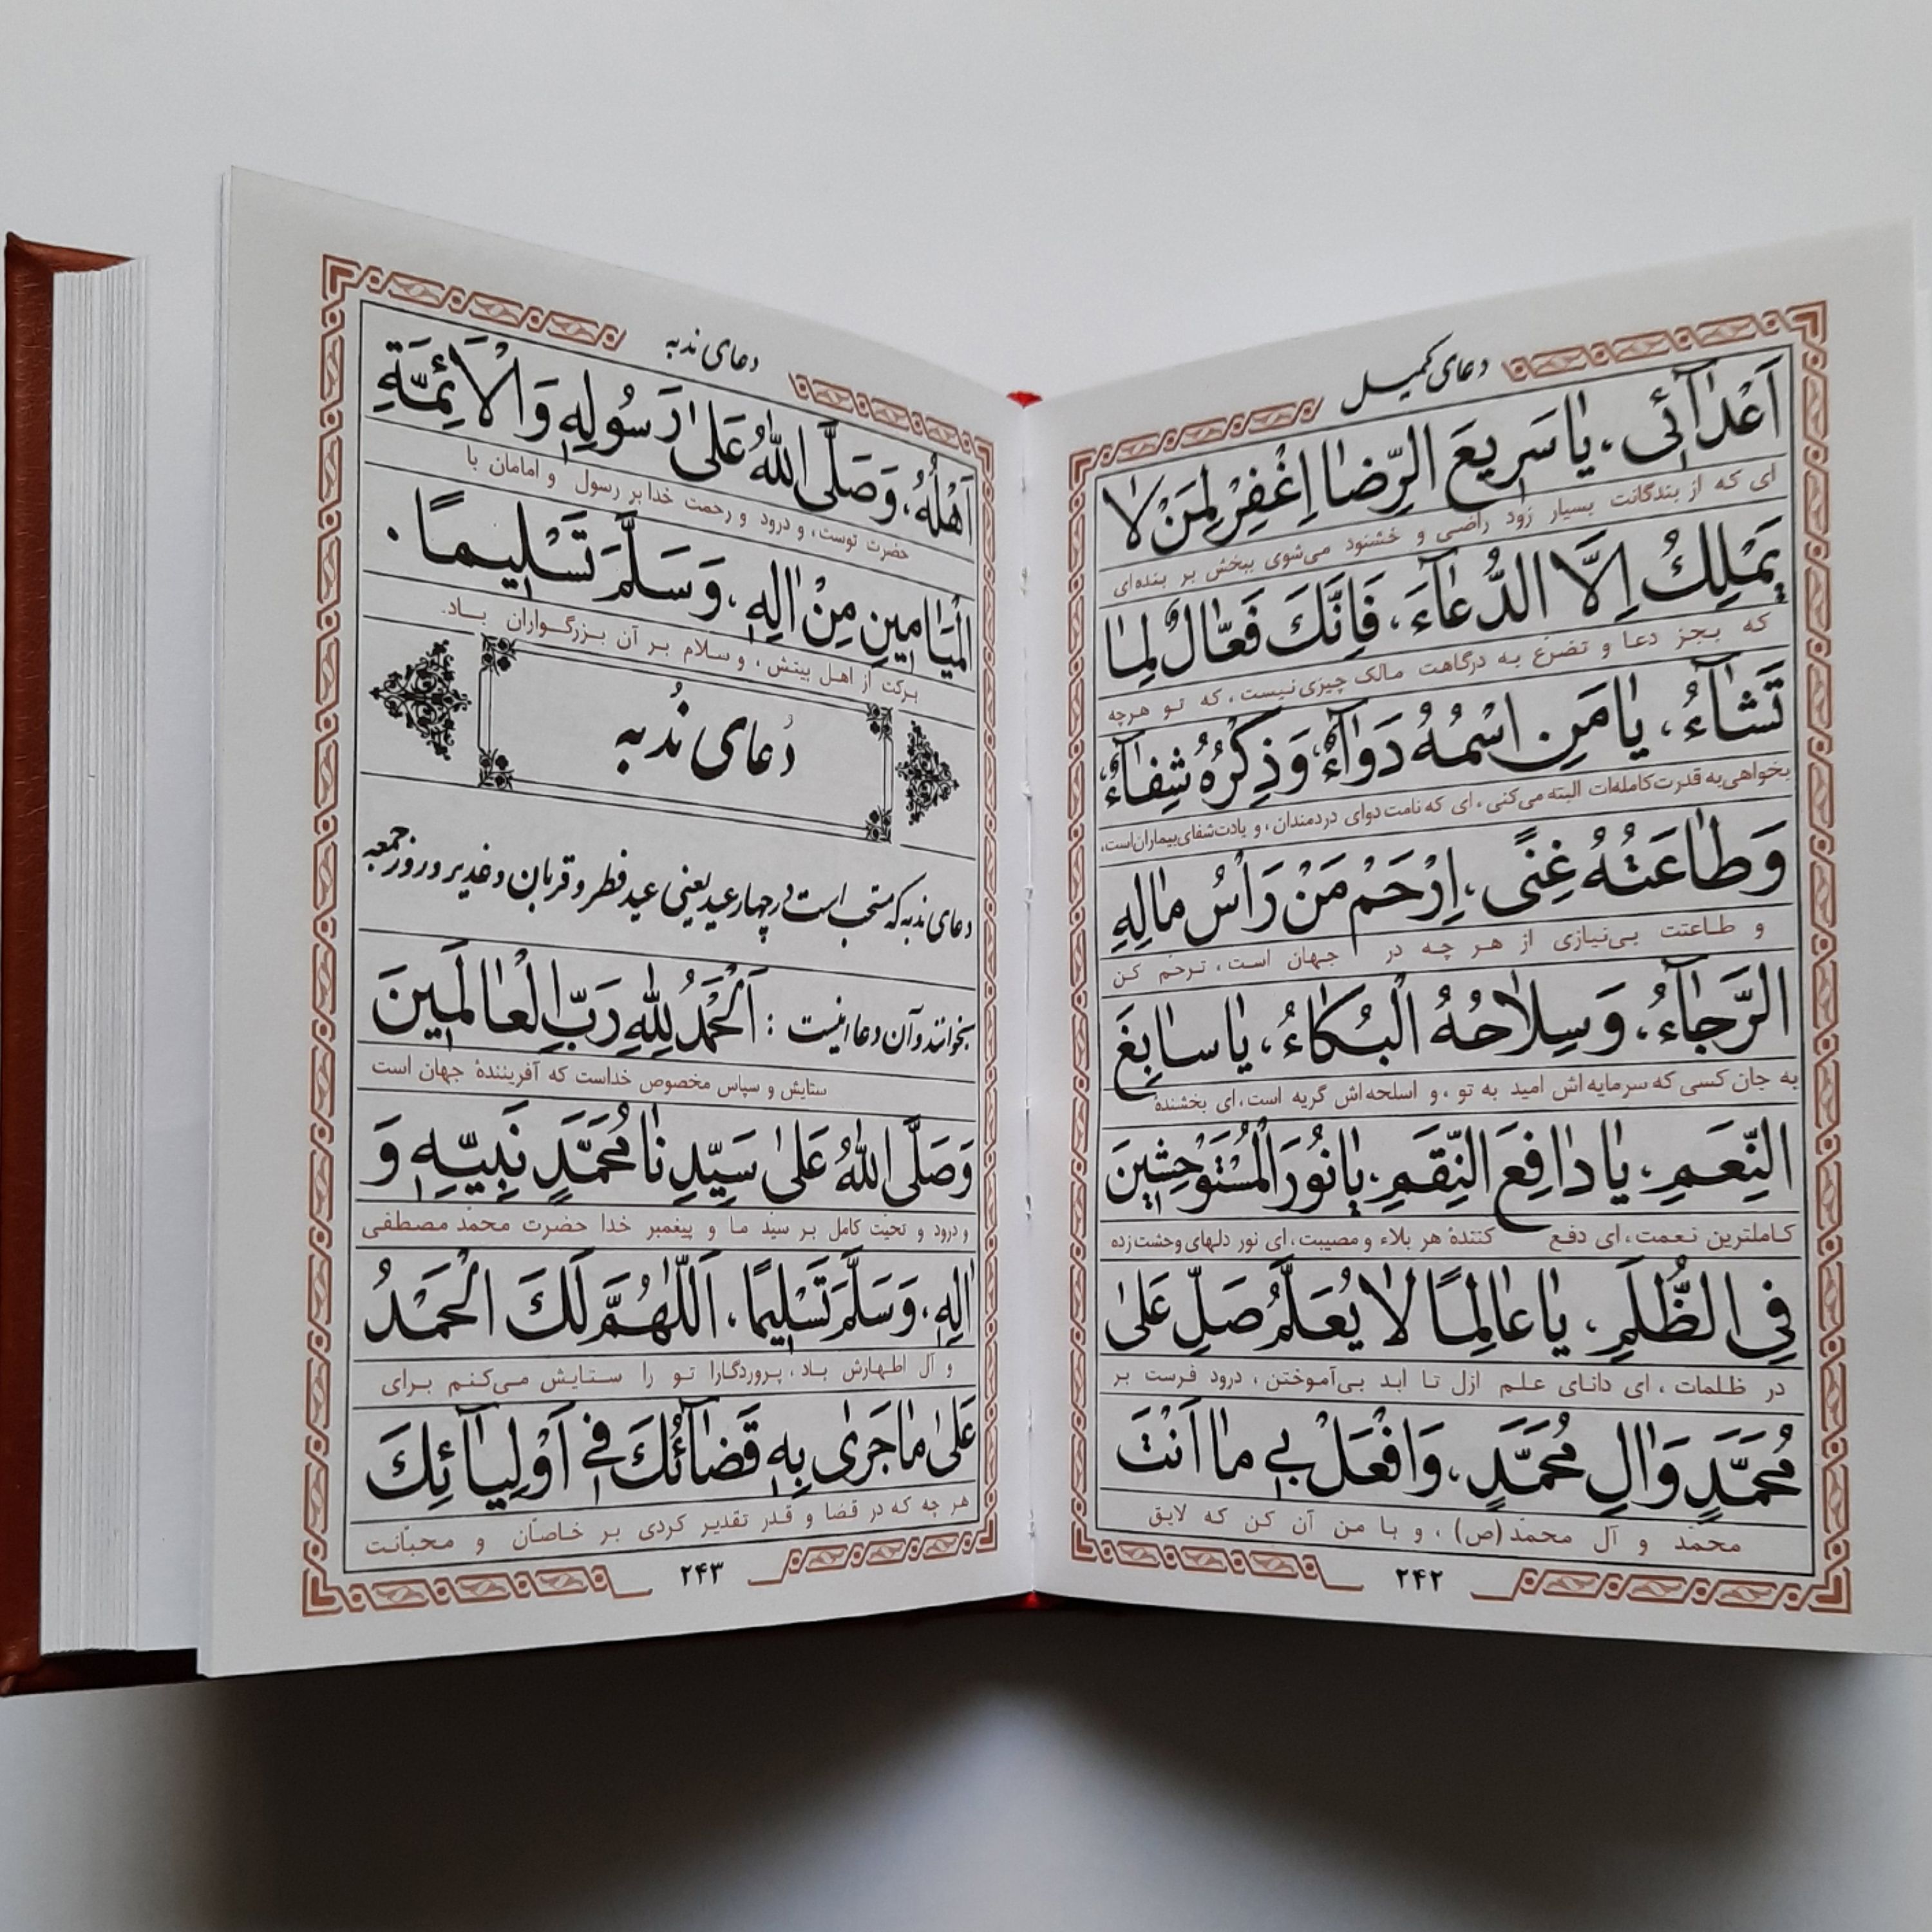 دعای کمیل
اَعْدٰائی، یٰا سَریعَ الرِّضٰا اِغْفِرْ لِمَنْ لا
ای که از بندگانت بسیار زود راضی و خشنود می‌شوی ببخش بر بنده‌ای
یَمْلِکُ اِلَّا الدُّعٰاءَ، فَاِنَّکَ فَعّٰالٌ لِمٰا
که بجز دعا و تضرع به درگاهت مالک چیزی نیست، که تو هرچه
تَشٰاءُ، یٰا مَنِ اسْمُهُ دَوٰاءٌ، وَذِکْرُهُ شِفٰاءٌ،
بخواهی به قدرت کامله‌ات البته می‌کنی، ای که نامت دوای دردمندان، و یادت شفای بیماران است،
وَطٰاعَتُهُ غِنًی، اِرْحَمْ مَنْ رَاْسُ مٰالِهِ
و طاعتت بی‌نیازی از هر چه در جهان است، ترحم کن
الرَّجٰاءُ، وَسِلٰاحُهُ الْبُکٰاءُ، یٰا سٰابِغَ
به جان کسی که سرمایه‌اش امید به تو، و اسلحه‌اش گریه است، ای بخشندهٔ
النِّعَمِ، یٰا دٰافِعَ النِّقَمِ، یٰا نُورَ الْمُسْتَوْحِشینَ
کاملترین نعمت، ای دفع کنندهٔ هر بلاء و مصیبت، ای نور دلهای وحشت زده
فِی الظُّلَمِ، یٰا عٰالِمًا لٰا یُعَلَّمُ صَلِّ عَلیٰ
در ظلمات، ای دانای علم ازل تا ابد بی‌آموختن، درود فرست بر
مُحَمَّدٍ وَاٰلِ مُحَمَّدٍ، وَافْعَلْ بی مٰا اَنْتَ
محمد و آل محمد (ص)، و با من آن کن که لایق
۲۴۲
دعای ندبه
اَهْلُهُ، وَصَلَّی اللهُ عَلیٰ رَسُولِهِ وَالْاَئِمَّةِ
حضرت توست، و درود و رحمت خدا بر رسول و امامان با
الْمَیٰامینَ مِنْ اٰلِهِ، وَسَلَّمَ تَسْلیمًا.
برکت از اهل بیتش، و سلام بر آن بزرگواران باد.
دُعای نُدبه
دعای ندبه که مستحب است در چهار عید یعنی عید فطر و قربان و غدیر و روز جمعه
بخوانند و آن دعا اینست: اَلْحَمْدُ لِلّٰهِ رَبِّ الْعٰالَمینَ
ستایش و سپاس مخصوص خداست که آفرینندهٔ جهان است
وَصَلَّی اللهُ عَلیٰ سَیِّدِنٰا مُحَمَّدٍ نَبِیِّهِ وَ
و درود و تحیت کامل بر سید ما و پیغمبر خدا حضرت محمد مصطفی
اٰلِهِ، وَسَلَّمَ تَسْلیمًا، اَللّٰهُمَّ لَکَ الْحَمْدُ
و آل اطهارش باد، پروردگارا تو را ستایش می‌کنم برای
عَلیٰ مٰا جَریٰ بِهِ قَضٰائُکَ فی اَوْلِیٰائِکَ
هر چه که در قضا و قدر تقدیر کردی بر خاصّان و محبّانت
۲۴۳